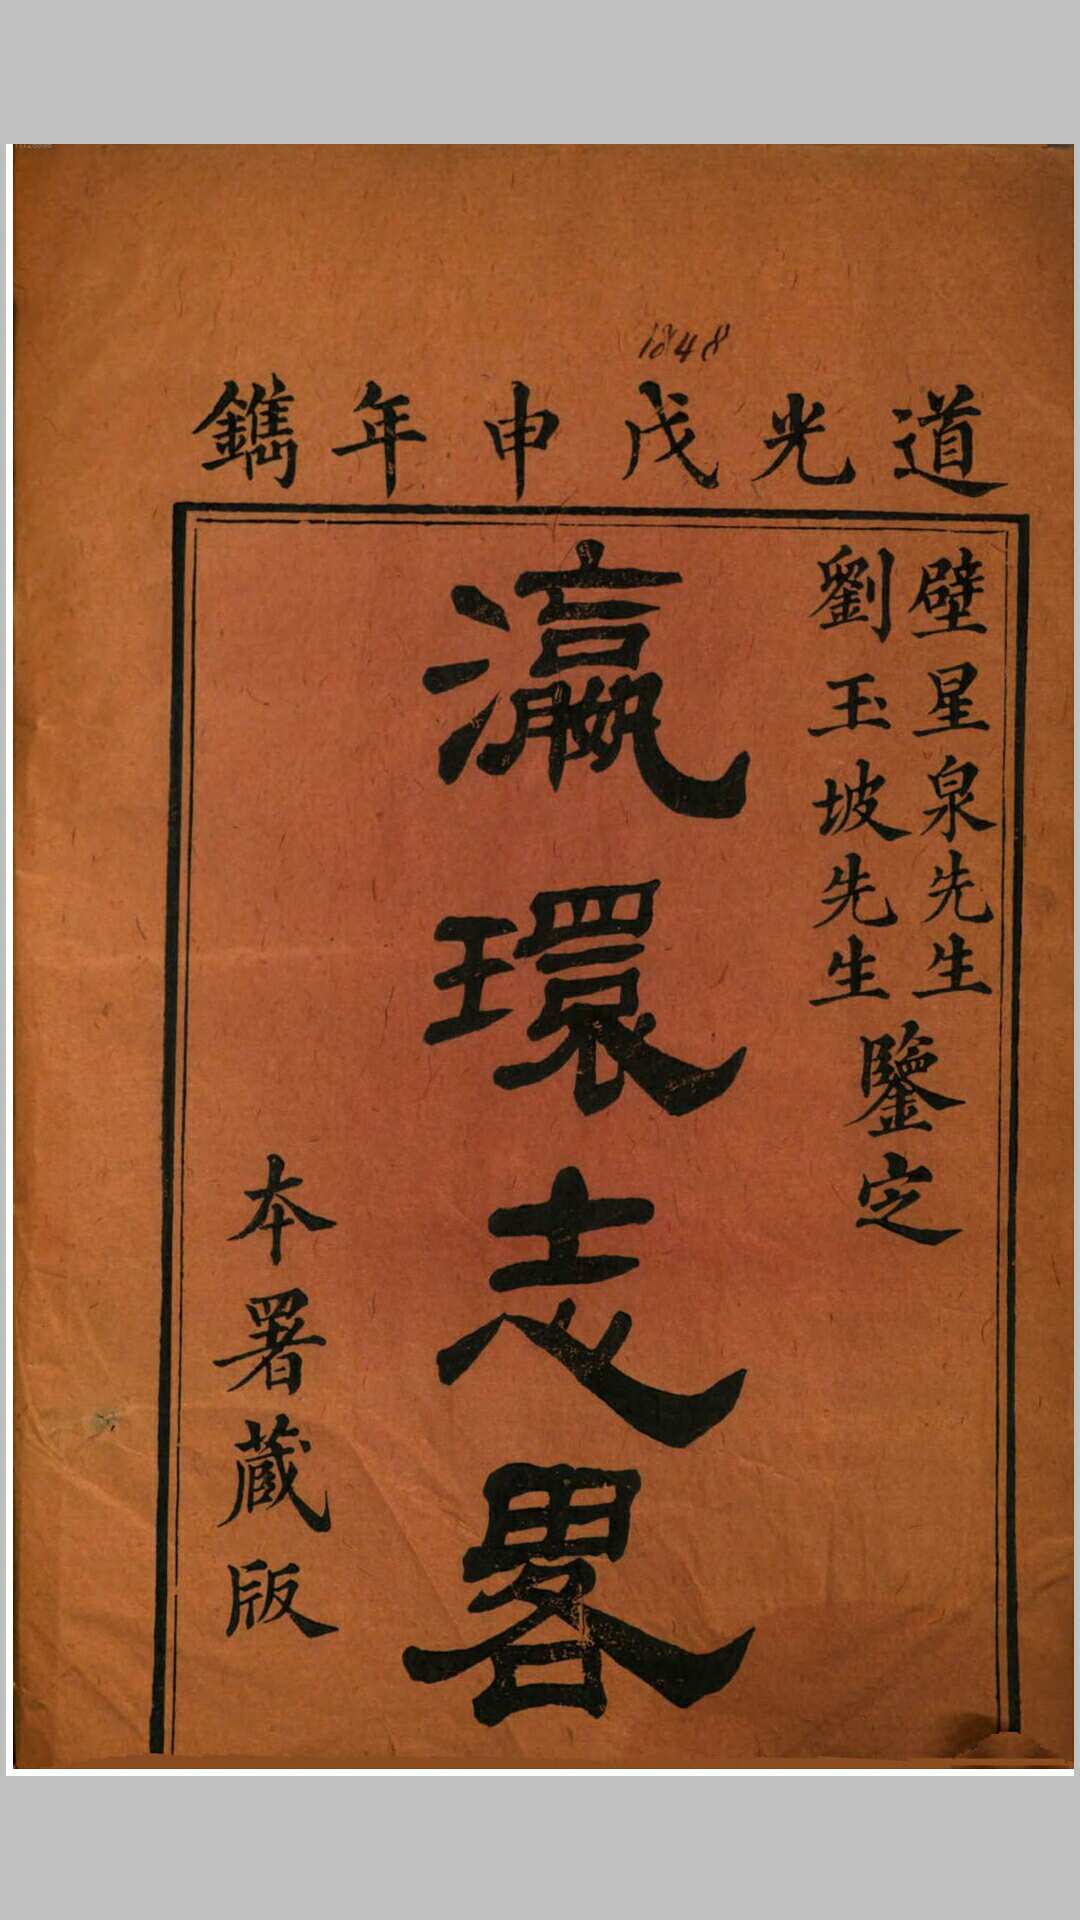 1848
道光戊申年鐫
壁星泉先生
劉玉坡先生
鑒定
瀛環志畧
本署藏版